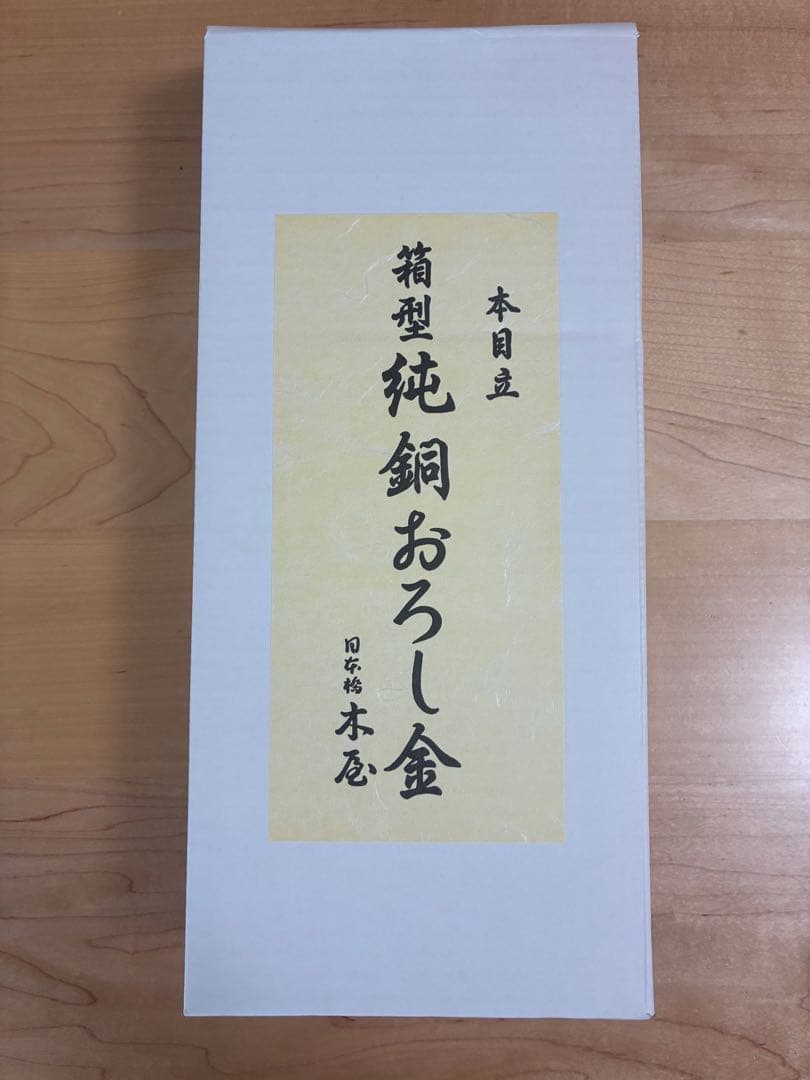 本目立
箱型純銅おろし金
日本橋木屋